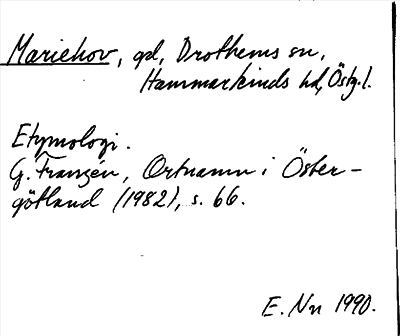 Mariehov, gd, Drothems sn,
Hammarkinds hd, Östg.l.
Etymologi.
G. Franzén, Ortnamn i Öster-
götland (1982), s. 66.
E. Nn 1990.